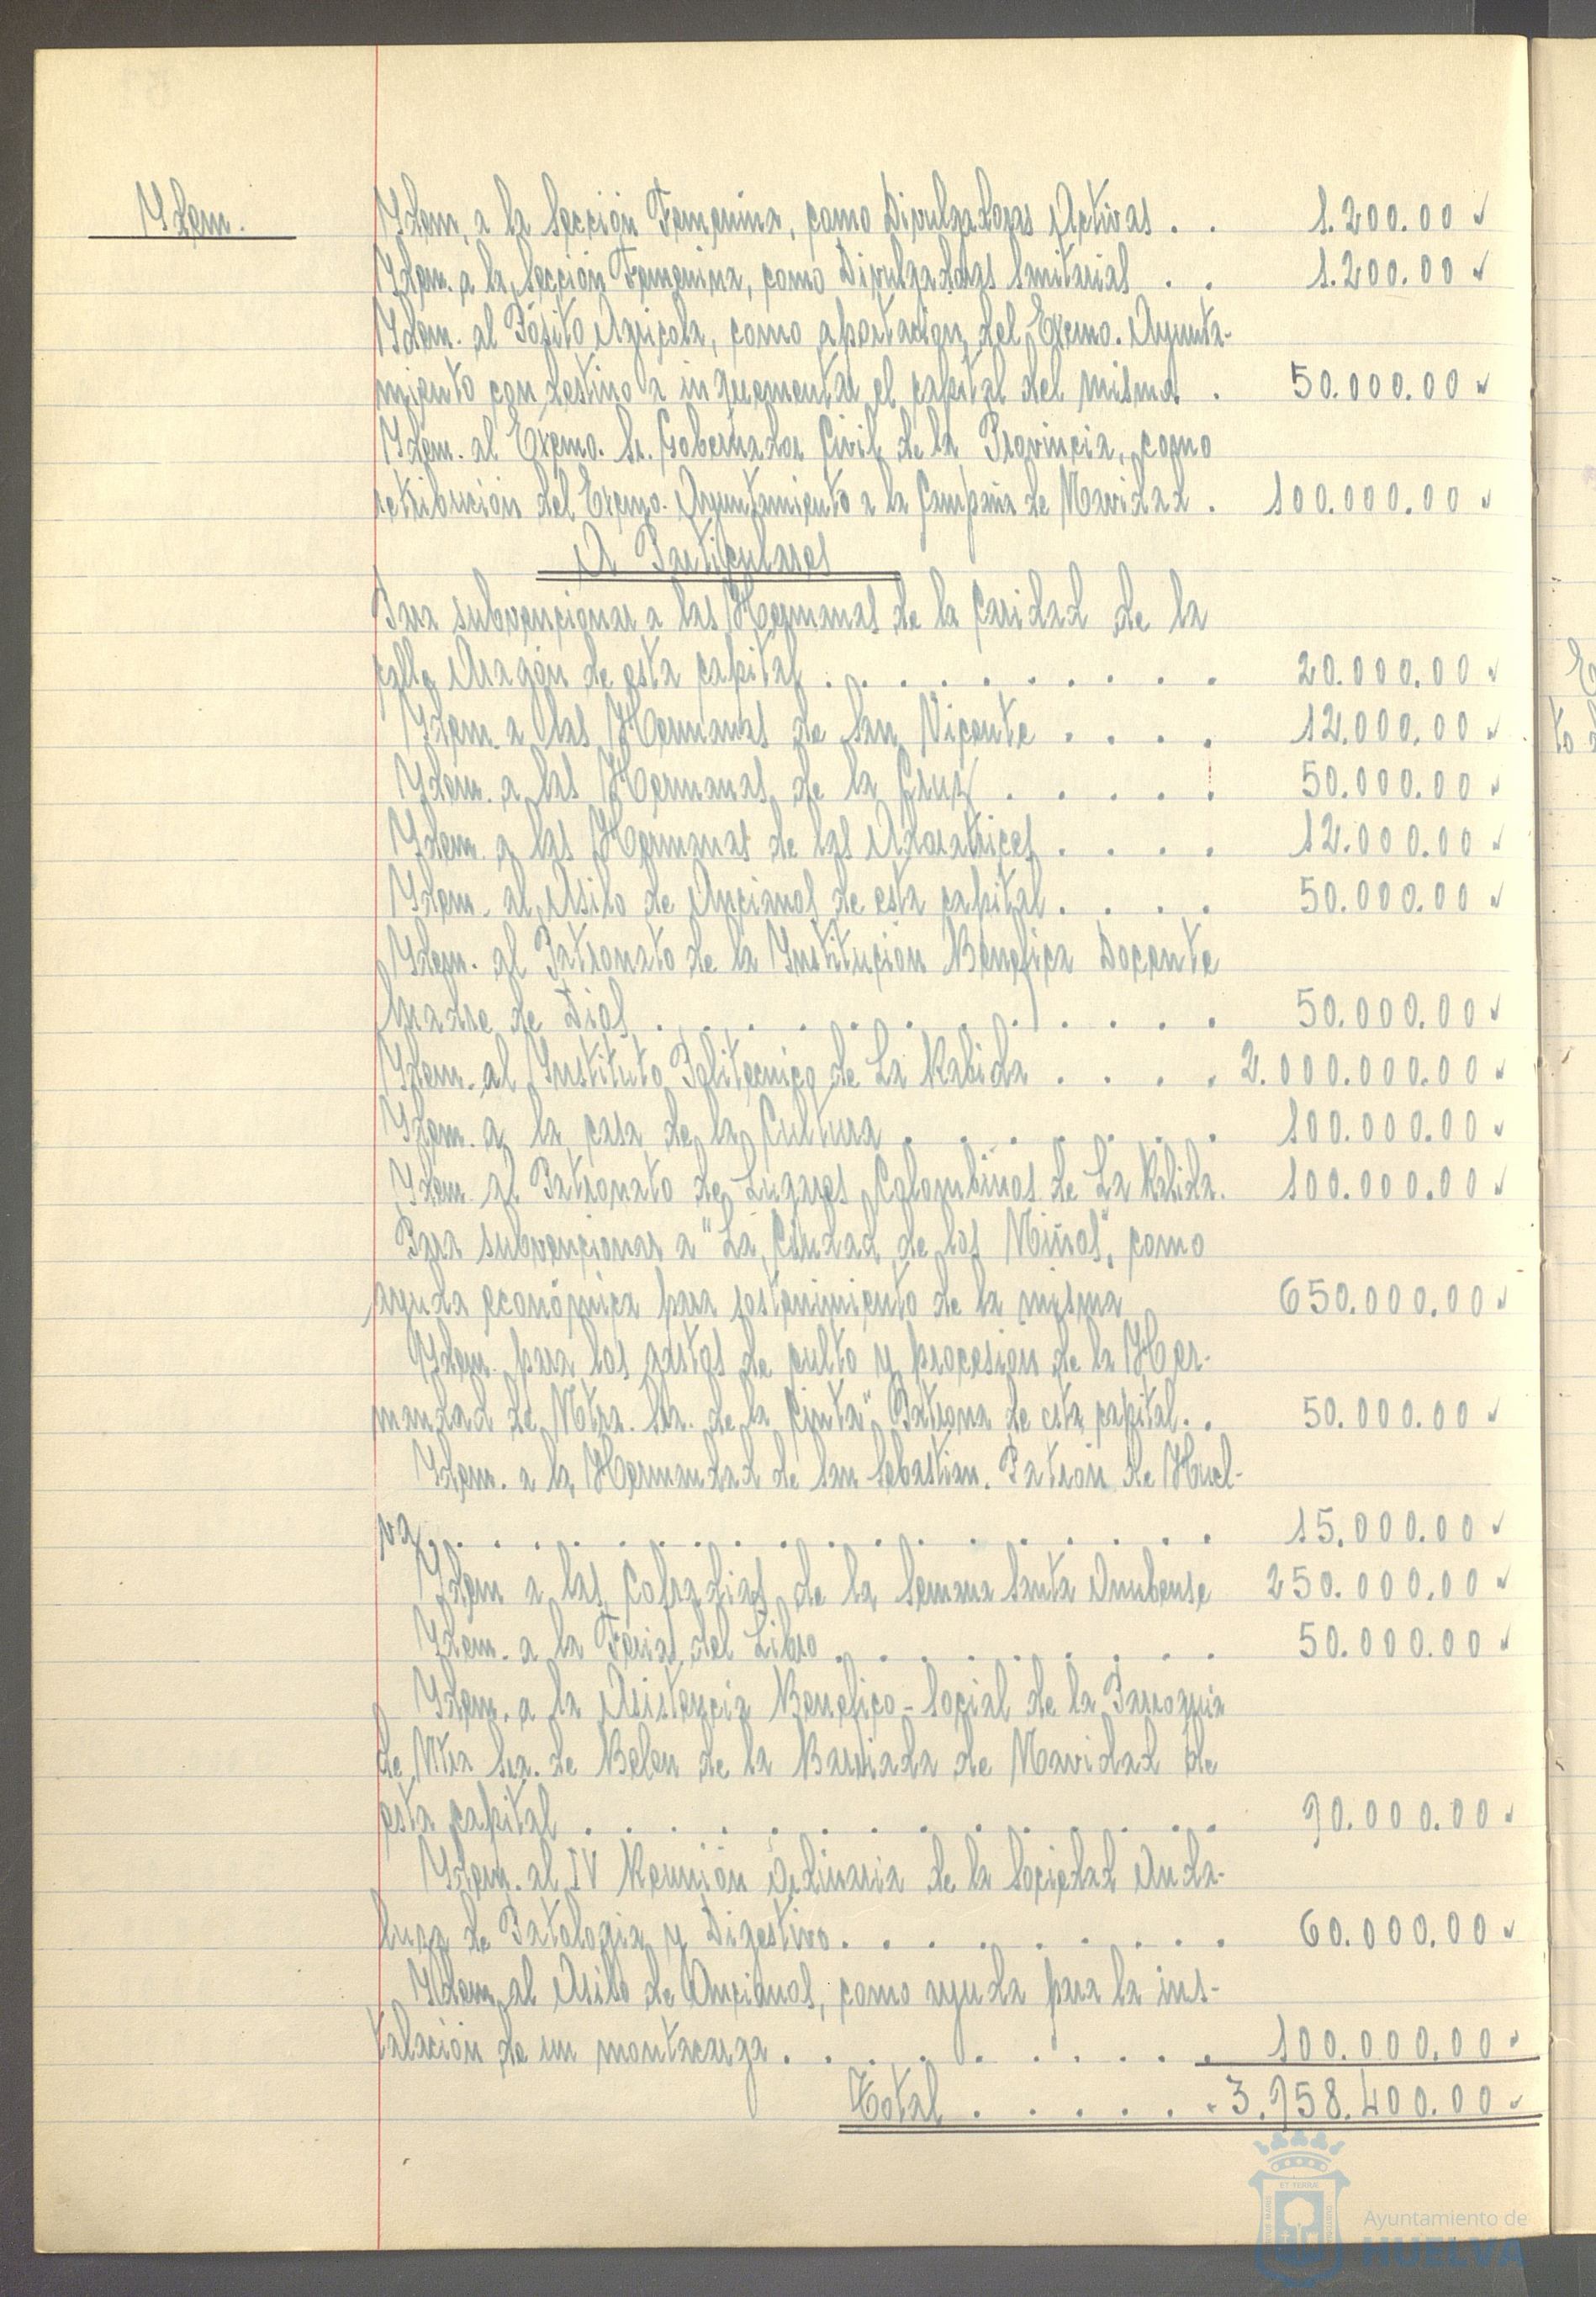 Idem.
Idem, a la Sección Femenina, como Divulgadoras Activas . . 1.200.00
Idem. a la Sección Femenina, como Divulgadoras Sanitarias . . 1.200.00
Idem. al Pósito Agricola, como aportación del Excmo. Ayunta-
miento con destino a incrementar el capital del mismo . 50.000.00
Idem. al Excmo. Sr. Gobernador Civil de la Provincia, como
retribución del Excmo. Ayuntamiento a la Campaña de Navidad . 100.000.00
A Particulares
Para subvencionar a las Hermanas de la Caridad de la
calle Aragón de esta capital . . . . . . . . . . 20.000.00
Idem. a las Hermanas de San Vicente . . . . 12.000.00
Idem. a las Hermanas de la Cruz . . . . . 50.000.00
Idem. a las Hermanas de las Adoratrices . . . . 12.000.00
Idem. al Asilo de Ancianos de esta capital . . . . 50.000.00
Idem. al Patronato de la Institución Benefica Docente
Madre de Dios . . . . . . . . . . . . 50.000.00
Idem. al Instituto Politecnico de La Rabida . . . . 2.000.000.00
Idem. a la casa de la Cultura . . . . . . . 100.000.00
Idem al Patronato de Lugares Colombinos de La Rabida. 100.000.00
Para subvencionar a "La Ciudad de los Niños", como
ayuda económica para sostenimiento de la misma 650.000.00
Idem. para los gastos de culto y procesion de la Her-
mandad de Ntra. Sra. de la Cinta" Patrona de esta capital. . 50.000.00
Idem. a la Hermandad de San Sebastian. Patrón de Huel-
va . . . . . . . . . . . . . . . . . 15.000.00
Idem a las Cofradias de la Semana Santa Onubense 250.000.00
Idem. a la Ferias del Libro . . . . . . . . . 50.000.00
Idem. a la Asistencia Benefico-Social de la Parroquia
de Ntra Sra. de Belen de la Barriada de Navidad de
esta capital . . . . . . . . . . . . . . 90.000.00
Idem. al IV Reunión Ordinaria de la Sociedad Anda-
luza de Patologia y Digestivo . . . . . . . . . 60.000.00
Idem, al Asilo de Ancianos, como ayuda para la ins-
talación de un montacarga . . . . . . . . . 100.000.00
Total . . . . . . 3.958.400.00
Ayuntamiento de
HUELVA